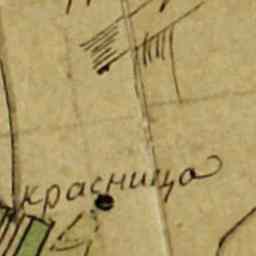 красница